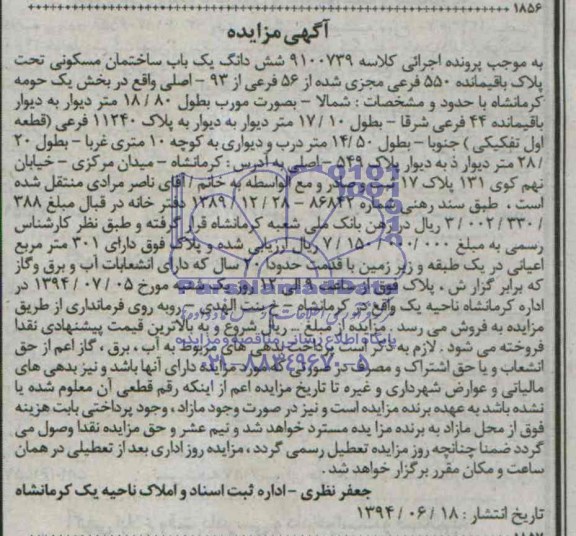 ۱۸۵۶
آگهی مزایده
به موجب پرونده اجرائی کلاسه ۹۱۰۰۷۳۹ شش دانگ یک باب ساختمان مسکونی تحت
پلاک باقیمانده ۵۵۰ فرعی مجزی شده از ۵۶ فرعی از ۹۳ – اصلی واقع در بخش یک حومه
کرمانشاه با حدود و مشخصات : شمالا – بصورت مورب بطول ۸۰ / ۱۸ متر دیوار به دیوار
باقیمانده ۴۴ فرعی شرقا – بطول ۱۰ / ۱۷ متر دیوار به دیوار به پلاک ۱۱۲۴۰ فرعی (قطعه
اول تفکیکی ) جنوبا – بطول ۵۰ /۱۴ متر درب و دیواری به کوچه ۱۰ متری غربا – بطول ۲۰
/ ۲۸ متر دیوار ذ به دیوار پلاک ۵۴۹ – اصلی به آدرس : کرمانشاه – میدان مرکزی – خیابان
نهم کوی ۱۳۱ پلاک ۱۷ صادر و مع الواسطه به خانم / آقای ناصر مرادی منتقل شده
است ، طبق سند رهنی شماره ۸۶۸۴۳ – ۲۸ / ۱۲ / ۱۳۸۹ دفتر خانه در قبال مبلغ ۳۸۸
/ ۳۳۰ / ۰۰۲ / ۳ ریال در رهن بانک ملی شعبه کرمانشاه قرار گرفته و طبق نظر کارشناس
رسمی به مبلغ ۰۰۰ / ۰۰۰ / ۱۵۰ / ۷ ریال ارزیابی شده و پلاک فوق دارای ۳۰۱ متر مربع
اعیانی در یک طبقه و زیر زمین با قدمت حدودا ۲۰ سال که دارای انشعابات آب و برق وگاز
که برابر گزار ش ، پلاک فوق از ساعت ۹ الی ۱۲ روز یک شنبه مورخ ۰۵ / ۰۷ / ۱۳۹۴ در
اداره کرمانشاه ناحیه یک واقع در کرمانشاه – خ بنت الهدی – روبه روی فرمانداری از طریق
مزایده به فروش می رسد . مزایده از مبلغ ریال شروع و به بالاترین قیمت پیشنهادی نقدا
فروخته می شود . لازم به ذکر است پرداخت بدهی های مربوط به آب ، برق ، گاز اعم از حق
انشعاب و یا حق اشتراک و مصرف در صورتی که مورد مزایده دارای آنها باشد و نیز بدهی های
مالیاتی و عوارض شهرداری و غیره تا تاریخ مزایده اعم از اینکه رقم قطعی آن معلوم شده یا
نشده باشد به عهده برنده مزایده است و نیز در صورت وجود مازاد ، وجود پرداختی بابت هزینه
فوق از محل مازاد به برنده مزا یده مسترد خواهد شد و نیم عشر و حق مزایده نقدا وصول می
گردد ضمنا چنانچه روز مزایده تعطیل رسمی گردد ، مزایده روز اداری بعد از تعطیلی در همان
ساعت و مکان مقرر برگزار خواهد شد .
جعفر نظری – اداره ثبت اسناد و املاک ناحیه یک کرمانشاه
تاریخ انتشار : ۱۸ / ۰۶ / ۱۳۹۴